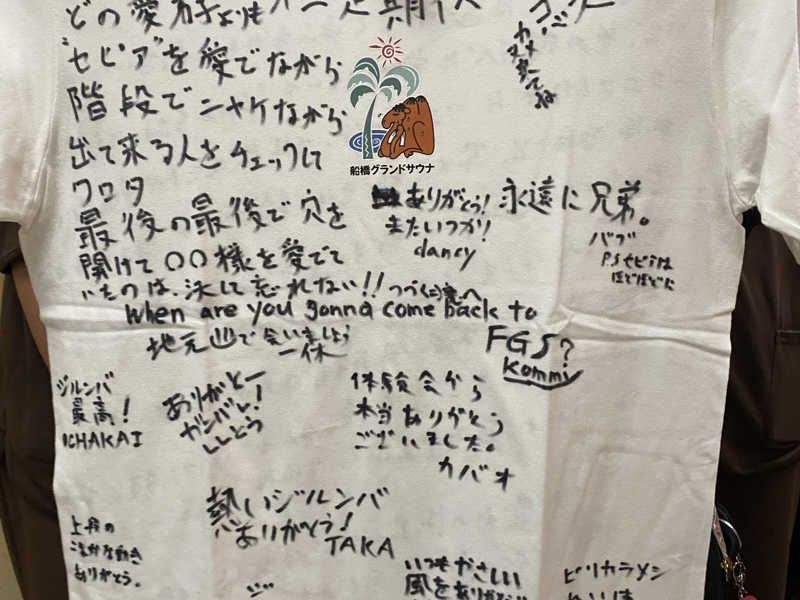 どの愛弟子よりも
"セピア"を愛でながら
階段でニヤケながら
出て来る人をチェックして
クロタ
最後の最後で穴を
開けて〇〇様を愛でて
いたのは、決して忘れない!!つづく(二)裏へ
また来てね
船橋グランドサウナ
ありがとう!
またいつか!
dancy
永遠に兄弟。
バブ
P.Sセピは
ほどほどに
When are you gonna come back to
FGS?
Kommy
地元山で会いましょう
一休
ジルンバ
最高!
ICHAKAI
ありがとー
ガンバレ!
ししとう
体験会から
本当ありがとう
ございました。
カバオ
熱いジルンバ
ありがとう!
TAKA
上段の
こまかな動き
ありがとう。
いつもやさしい
風をありがとう
ピリカラメン